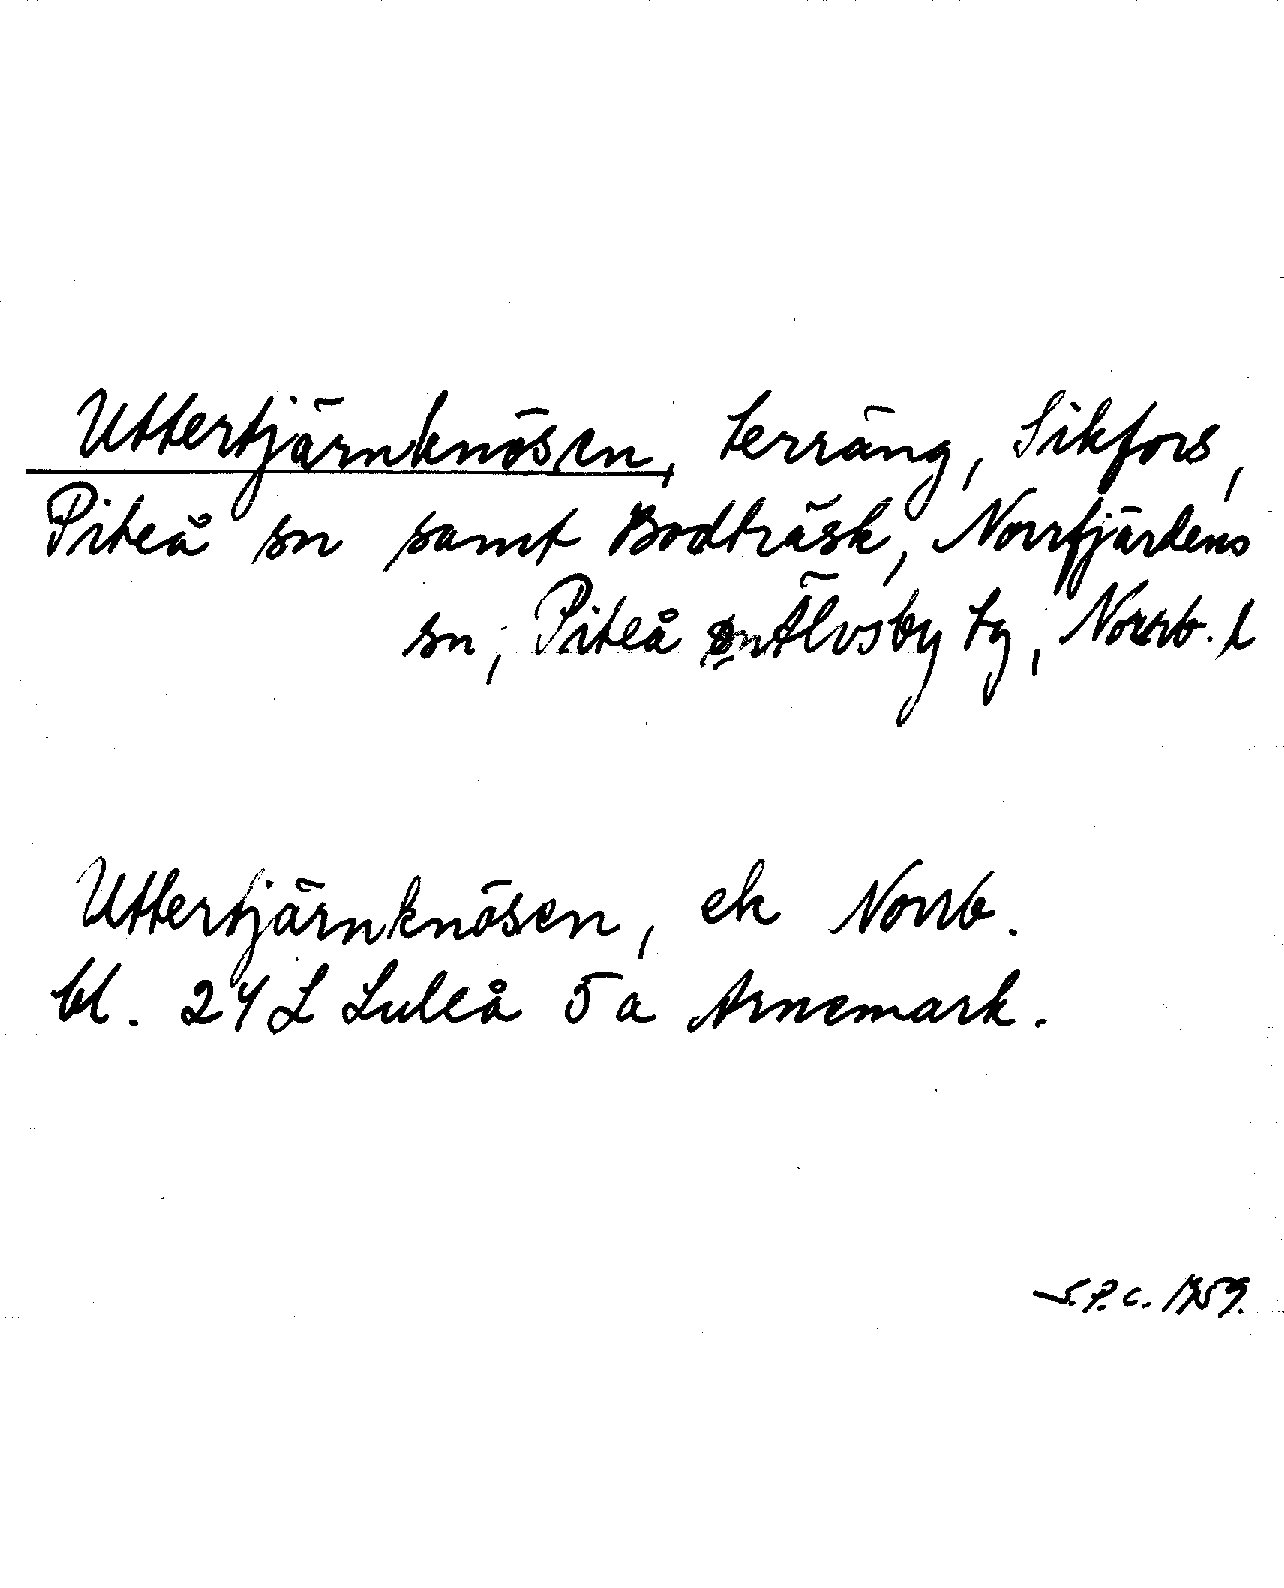 Uttertjärnknösen, terräng, Sikfors,
Piteå sn samt Bodträsk, Norrfjärdens
sn, Piteå Älvsby tg, Norrb. l
Uttertjärnknösen, ek Norrb.
bl. 24 L Luleå 5a Arnemark.
S.P.C. 1959.